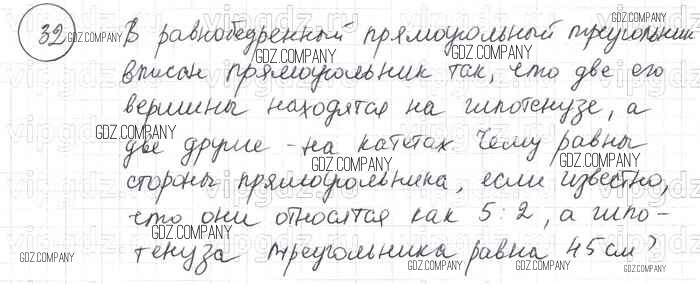 32 В равнобедренный прямоугольный треугольник
вписан прямоугольник так, что две его
вершины находятся на гипотенузе, а
две другие - на катетах. Чему равны
стороны прямоугольника, если известно,
что они относятся как 5:2, а гипо-
тенуза треугольника равна 45 см?
GDZ.COMPANY
GDZ.COMPANY
GDZ.COMPANY
GDZ.COMPANY
GDZ.COMPANY
GDZ.COMPANY
GDZ.COMPANY
GDZ.COMPANY
GDZ.COMPANY
GDZ.COMPANY
GDZ.COMPANY
GDZ.COMPANY
GDZ.COMPANY